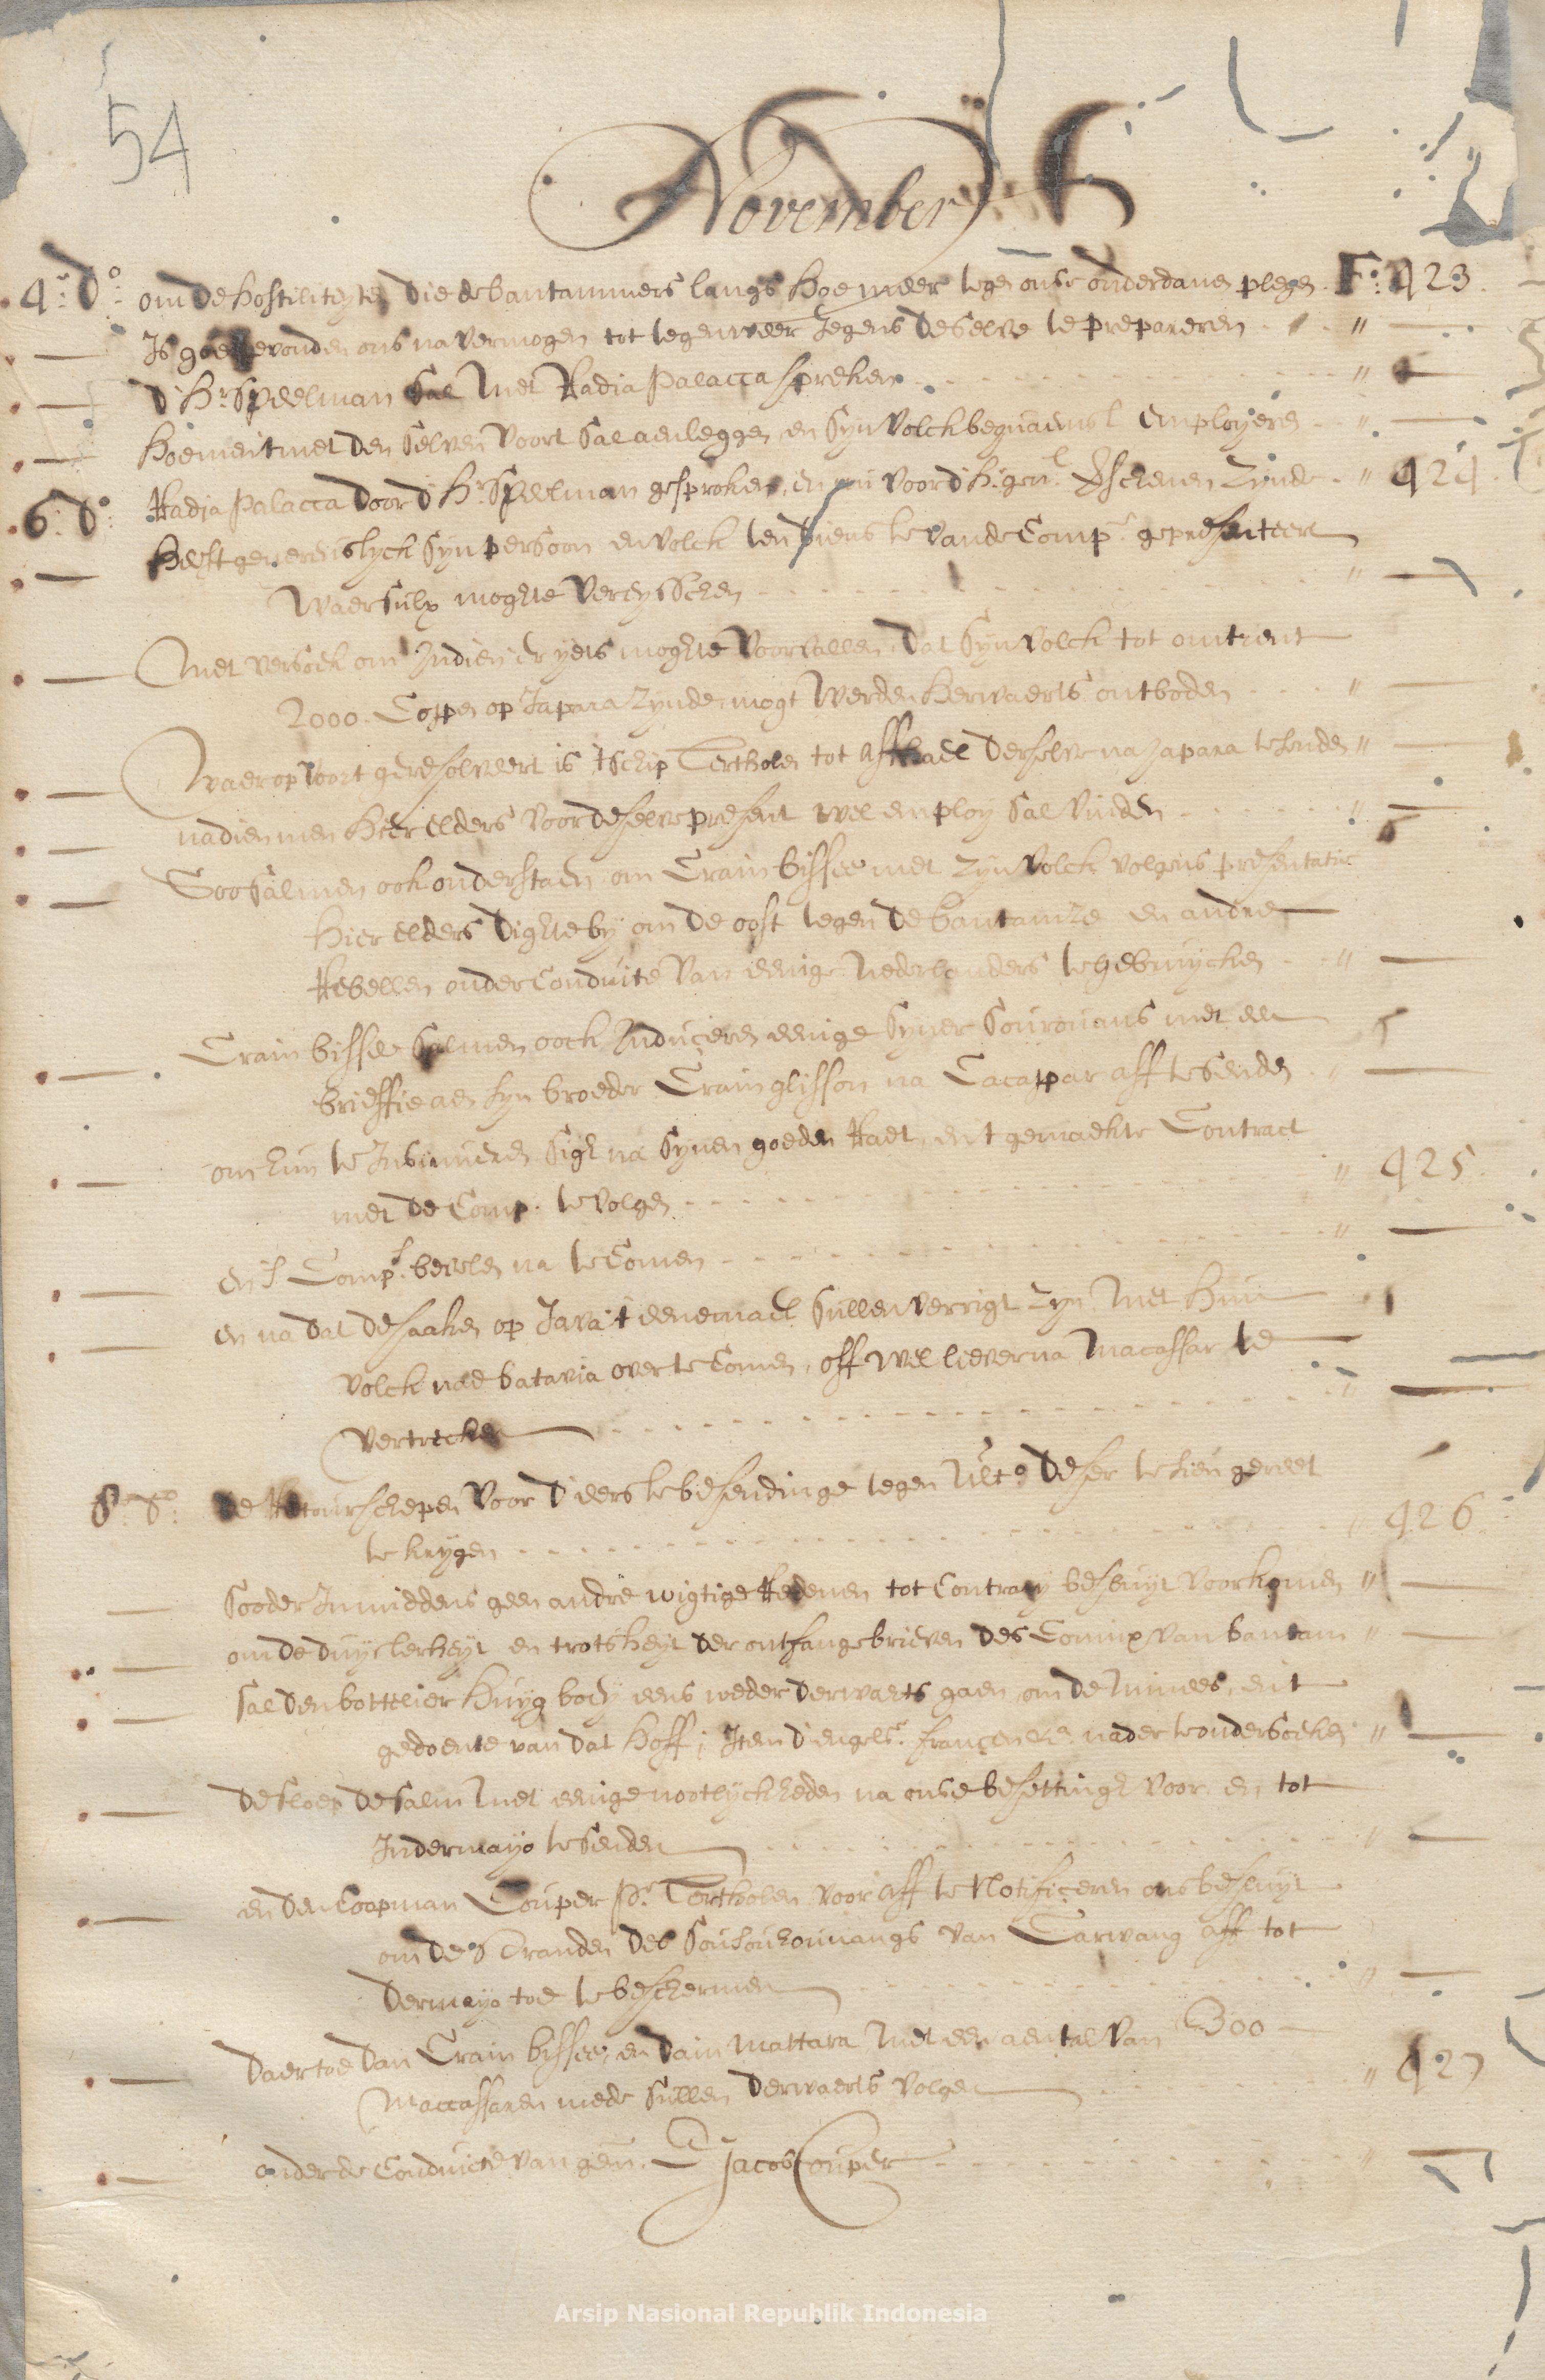 54
November
4.en do. om de hostiliteyten die de bantammers langs hoe meer tegen onse onderdanen plegen. Fo: 423.
Is goetgevonden ons na vermogen tot tegenweer Jegens deselve te prepareren " —
d'Hr. Speelman sal met Radja Palacca spreken " —
hoe men 't met den selven voort sal aenleggen en syn volck bequaemst employeren " —
6. do. Radja Palacca door d'Hr. Speelman gesproken, en nu voor d'Hr. genl. verschenen zynde " 424
heeft genereuslyck syn persoon en volck ten dienste van de Compe. gepresenteert
waer sulx mogte vereysschen " —
Met versoek om Indien er yets mogte voorvallen, dat syn volck tot omtrent
2000. Coppen op Japara zynde, mogt werden herwaerts ontboden " —
Waerop voort geresolveert is 't schip Tertholen tot affhael derselve na Japara te senden " —
nadien men hier elders voor deselve present wel employ sal vinden " —
Soo salmen ook onderstaen om Crain bissee met zyn volck volgens presentatie
hier elders digte by om de oost tegen de bantamze en andre
Rebellen onder Conduite van eenige Nederlanders te gebruycken " —
Crain bissee salmen ooch Induceren eenige syner Sourouans met een
brieffie aen syn broeder Crain glisson na Cacappar aff te senden " —
om hun te Insinueren sigh na synen goeden Raet, en 't gemaekte Contract
met de Comp. te volgen " 425
en 's Comps. bevelen na te Comen " —
en na dat de saaken op Java 't eenemael sullen verrigt zyn, met hun
volck nae batavia over te Comen, off wel liever na Macassar te
vertrecken " —
8. do. de Retourschepen voor d'eerste besendinge tegen Ulto. deser te sien gereet
te krygen " 426
Sooder Inmiddens geen andre wigtige Redenen tot Contrary besluyt voorkomen " —
om de duysterheyt en trotsheyt der ontfange brieven des Coninx van bantam " —
sal den bottelier Huyg boey eens weder derwaerts gaen, om de mines, en 't
gedoente van dat hoff; Item d'engelse. francen &a. nader te ondersoeken " —
de sloep de salm met eenige nootlyckheden na onse besettingh voor, en tot
Indermayo te senden " —
en den Coopman Couper pr. Tertholen voor aff te Notificeren ons besluyt
om de stranden des Sousouhounangs van Carwang aff tot
dermayo toe te beschermen " —
daertoe dan Crain bissee, en dain mattara met een aental van 300
Maccassaren mede sullen derwaerts volgen " 427
onder de Conduicte van gem. E Jacob Couper " —
Arsip Nasional Republik Indonesia